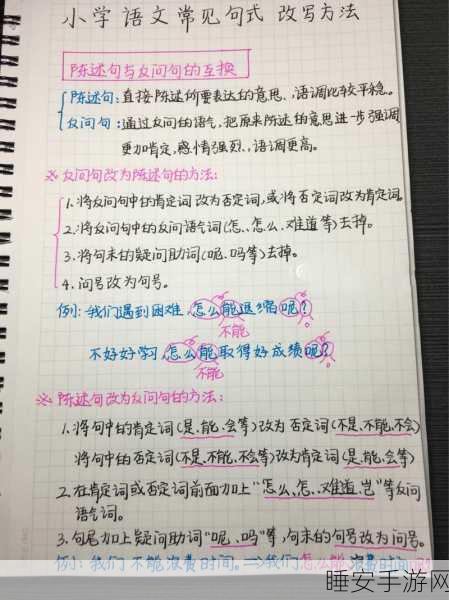 小学语文常见句式 改写方法
陈述句与反问句的互换
陈述句:直接陈述所要表达的意思、语调比较平稳。
反问句:通过反问的语气,把原来陈述的意思进一步强调
更加肯定,感情强烈、语调更高。
※反问句改为陈述句的方法:
1.将反问句中的肯定词改为否定词,或将否定词改为肯定词
2.将反问句中的反问语气词(怎、怎么、难道等)去掉。
3.将句末的疑问助词(呢、吗等)去掉。
4.问号改为句号。
例:我们遇到困难,怎么能退缩呢?
不能
不好好学习,怎么能取得好成绩呢?
不能
※陈述句改为反问句的方法:
1.将句中的肯定词(是、能、会等)改为否定词(不是、不能、不会)
将句中的否定词(不是、不能、不会等)改为肯定词(是、能、会等)
2.在肯定词或否定词前面加上"怎么、怎、难道、岂"等反问
语气词。
3.句尾加上疑问助词"呢、吗"等,句末的句号改为问号。
例:我们不能浪费时间。⇒我们怎么能浪费时间呢?
睡安手游网